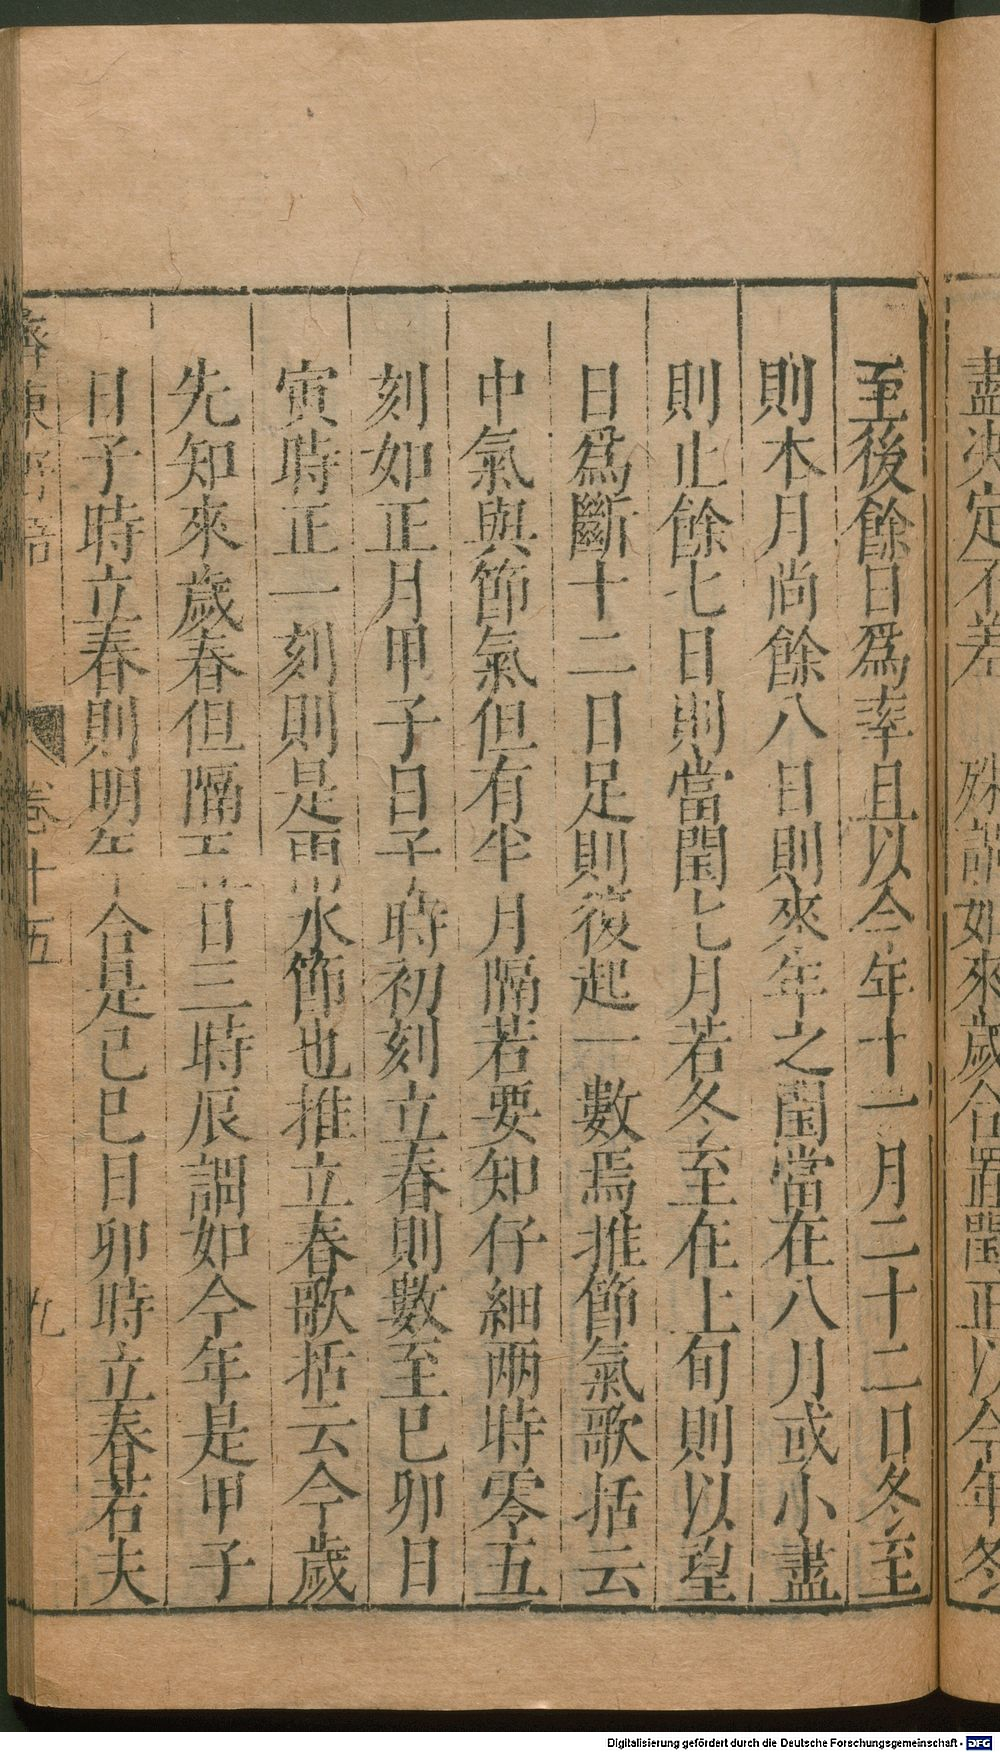 盡決定不差 殊 如來歲合置閏正以今年冬
至後餘日爲率且以今年十一月二十二日冬至
則本月尚餘八日則來年之閏當在八月或小盡
則止餘七日則當閏七月若冬至在上旬則以望
日爲斷十二日足則復起一數焉推節氣歌括云
中氣與節氣但有半月隔若要知仔細兩時零五
刻如正月甲子日子時初刻立春則數至己卯日
寅時正一刻則是雨水節也推立春歌括云今歲
先知來歲春但隔五日三時辰謂如今年是甲子
日子時立春則明年合是己巳日卯時立春若夫
齊東野語 卷十五 九
Digitalisierung gefördert durch die Deutsche Forschungsgemeinschaft - DFG